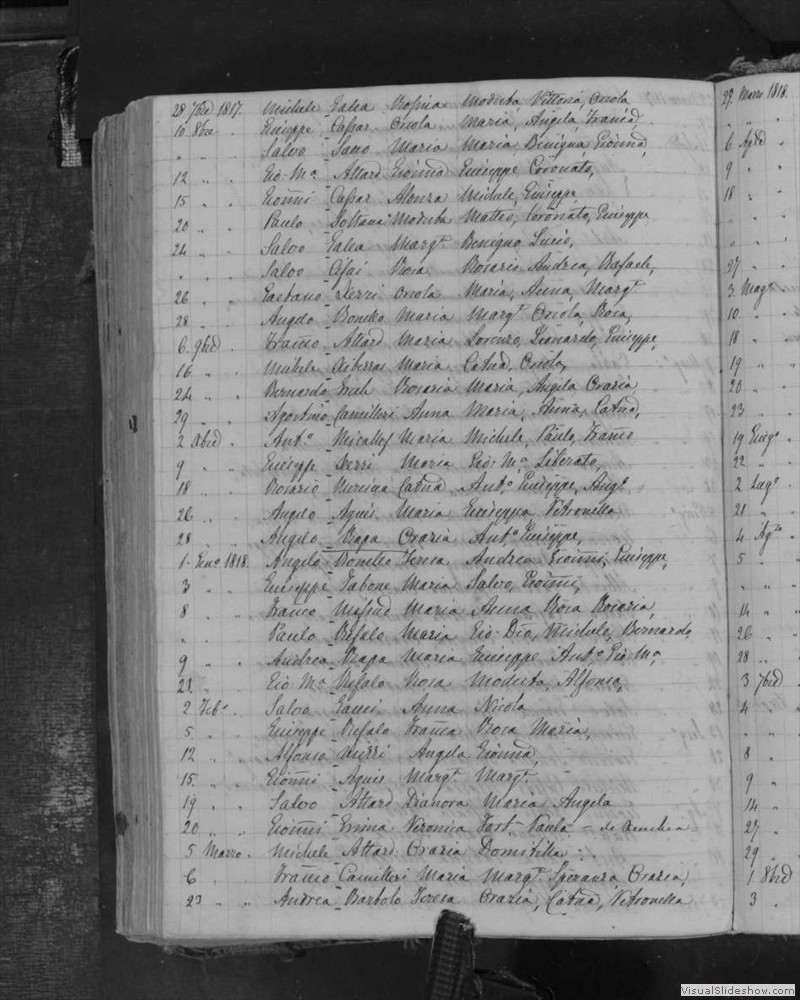 28 7bre 1817. Michele Galea Rosina Modesta, Vittoria, Oriola
10 8bre . Giuseppe Cassar Oriola Maria, Angela, Franca.
" " . Salvo Maria Maria, Benigna, Gionna,
12 " . Gio Ma Attard Gionna Giuseppe Coronato,
15 " . Gionni Cassar Alonza Michele, Giuseppe
20 " . Paulo Soltana Modesta Matteo, Coronato, Giuseppe
24 " . Salvo Galea Margta Benigno, Lucio,
" " . Salvo Rosa Rosario Andrea, Rafaele,
26 " . Gaetano Oriola Maria, Anna, Margta
28 " . Angelo Bonello Maria Margta Oriola, Rosa,
6. 9bre . Franco Attard Maria Lorenzo, Leonardo, Giuseppe,
16 " . Michele Maria Catna, Oriola,
24 " . Bernardo Grech Rosaria Maria, Angela Orazia
29 " . Agostino Camilleri Anna Maria, Anna, Catna,
2 Xbre . Anto Micallef Maria Michele, Paulo, Franco
9 " . Giusepp Maria Gio: Ma Liberato,
18 " . Rosario Catna Anto Giuseppe, Ango
26 " . Angelo Agius Maria Giuseppa Petronilla
28 " . Angelo Psapa Orazia Anto Giuseppe,
1. Geno 1818. Angelo Bonello Teresa Andrea Gionni, Giuseppe,
3 " . Giuseppe Tabone Maria Salvo, Gionni,
8 " . Franco Mifsud Maria Anna Rosa Rosaria,
" . Paulo Refalo Maria Gio: Dio, Michele, Bernardo
9 " . Andrea Psapa Maria Giuseppe Anto Gio Ma,
21. " . Gio Ma Refalo Rosa Modesto, Alfonso,
2 Febo . Salvo Anna Nicola
5 " . Giuseppe Refalo Franca Rosa Maria,
12 " . Alfonso Angela Gionna,
15. " . Gionni Agius Margta Margta
19 " . Salvo Attard Dianora Maria Angela
20 " . Gionni Veronica Fort. Paula
5 Marzo . Michele Attard Orazia Domitilla
6 . Franco Camilleri Maria Margta Speranza, Orazia,
23 " " Andrea Bartolo Teresa Orazia, Catna, Petronilla
27. Marzo 1818.
" "
6 Aple
9 "
18 "
" "
" "
27 "
3. Mago
10. "
18 "
19 "
20 "
23 "
19 Giugo
22 "
2 Lugo
21 "
4 Agto
5 "
" "
14 "
26 "
28 "
3 7bre
4 "
" "
8 "
9 "
14 "
27 "
29 "
1 8bre
3 "
VisualSlideshow.com